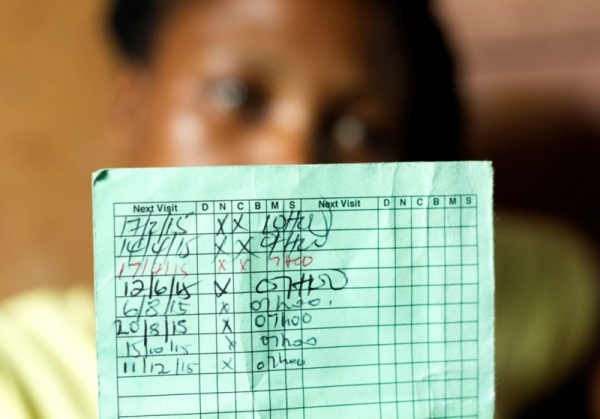 Next Visit D N C B M S Next Visit D N C B M S
17/2/15 X X 10H00
14/4/15 X X 9H00
17/4/15 X X 7H00
12/6/15 X 07H00
6/8/15 X 07h00.
20/8/15 X 07h00
15/10/15 X 07h00
11/12/15 X 07h00